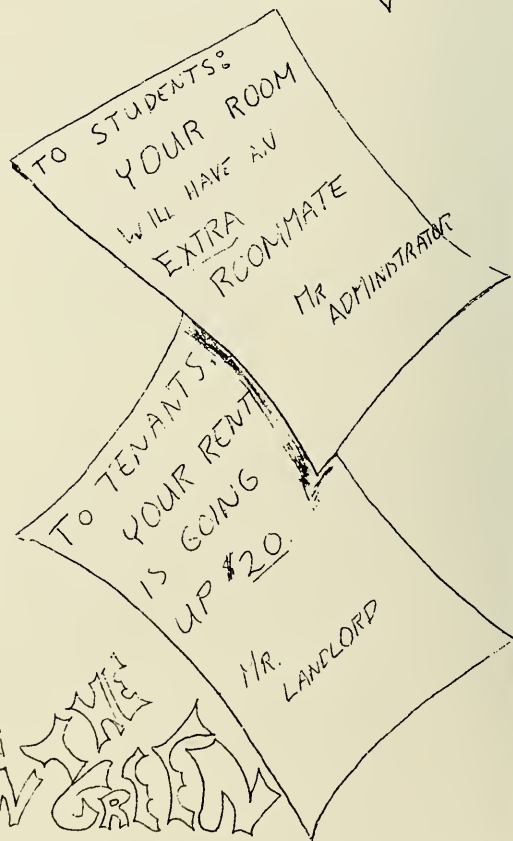 TO STUDENTS:
YOUR ROOM
WILL HAVE AN
EXTRA
ROOMMATE
MR
ADMINISTRATOR
TO TENANTS:
YOUR RENT
IS GOING
UP $20.
MR.
LANDLORD
THE
GREEN